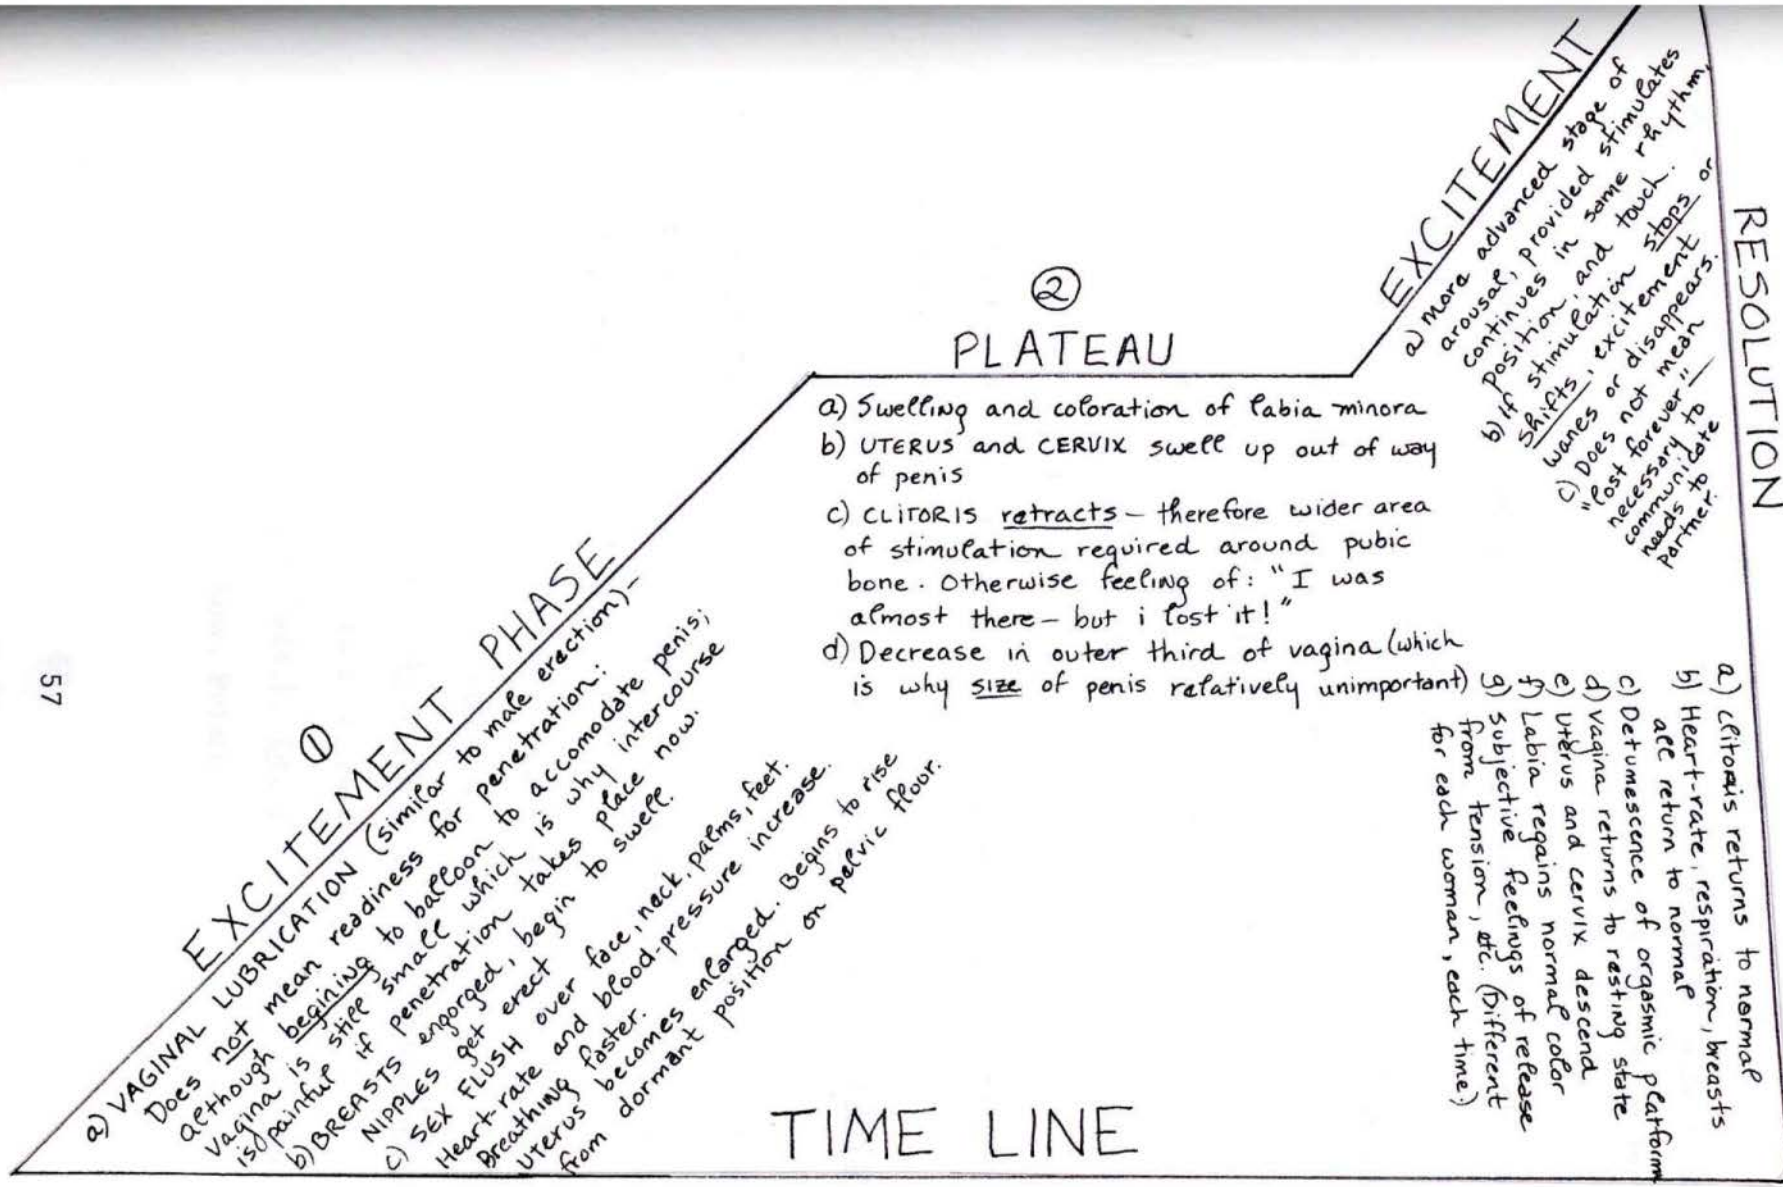 ①
EXCITEMENT PHASE
a) VAGINAL LUBRICATION (similar to male erection)-
Does not mean readiness for penetration:
although begining to balloon to accomodate penis;
vagina is still small which is why intercourse
is painful if penetration takes place now.
b) BREASTS engorged, begin to swell.
NIPPLES get erect
c) SEX FLUSH over face, neck, palms, feet.
Heart-rate and blood-pressure increase.
Breathing faster.
Uterus becomes enlarged. Begins to rise
from dormant position on pelvic floor.
②
PLATEAU
a) Swelling and coloration of labia minora
b) UTERUS and CERVIX swell up out of way
of penis
c) CLITORIS retracts – therefore wider area
of stimulation required around pubic
bone. Otherwise feeling of: "I was
almost there – but i lost it!"
d) Decrease in outer third of vagina (which
is why size of penis relatively unimportant)
EXCITEMENT
a) more advanced stage of
arousal, provided stimulates
continues in same rhythm,
position, and touch.
b) If stimulation stops or
shifts, excitement
wanes or disappears.
(c) Does not mean
"lost forever" –
necessary to
communicate
needs to
partner.
RESOLUTION
a) clitoris returns to normal
b) Heart-rate, respiration, breasts
all return to normal
c) Detumescence of orgasmic platform
d) Vagina returns to resting state
e) Uterus and cervix descend
f) Labia regains normal color
g) subjective feelings of release
from tension, etc. (Different
for each woman, each time.)
TIME LINE
57